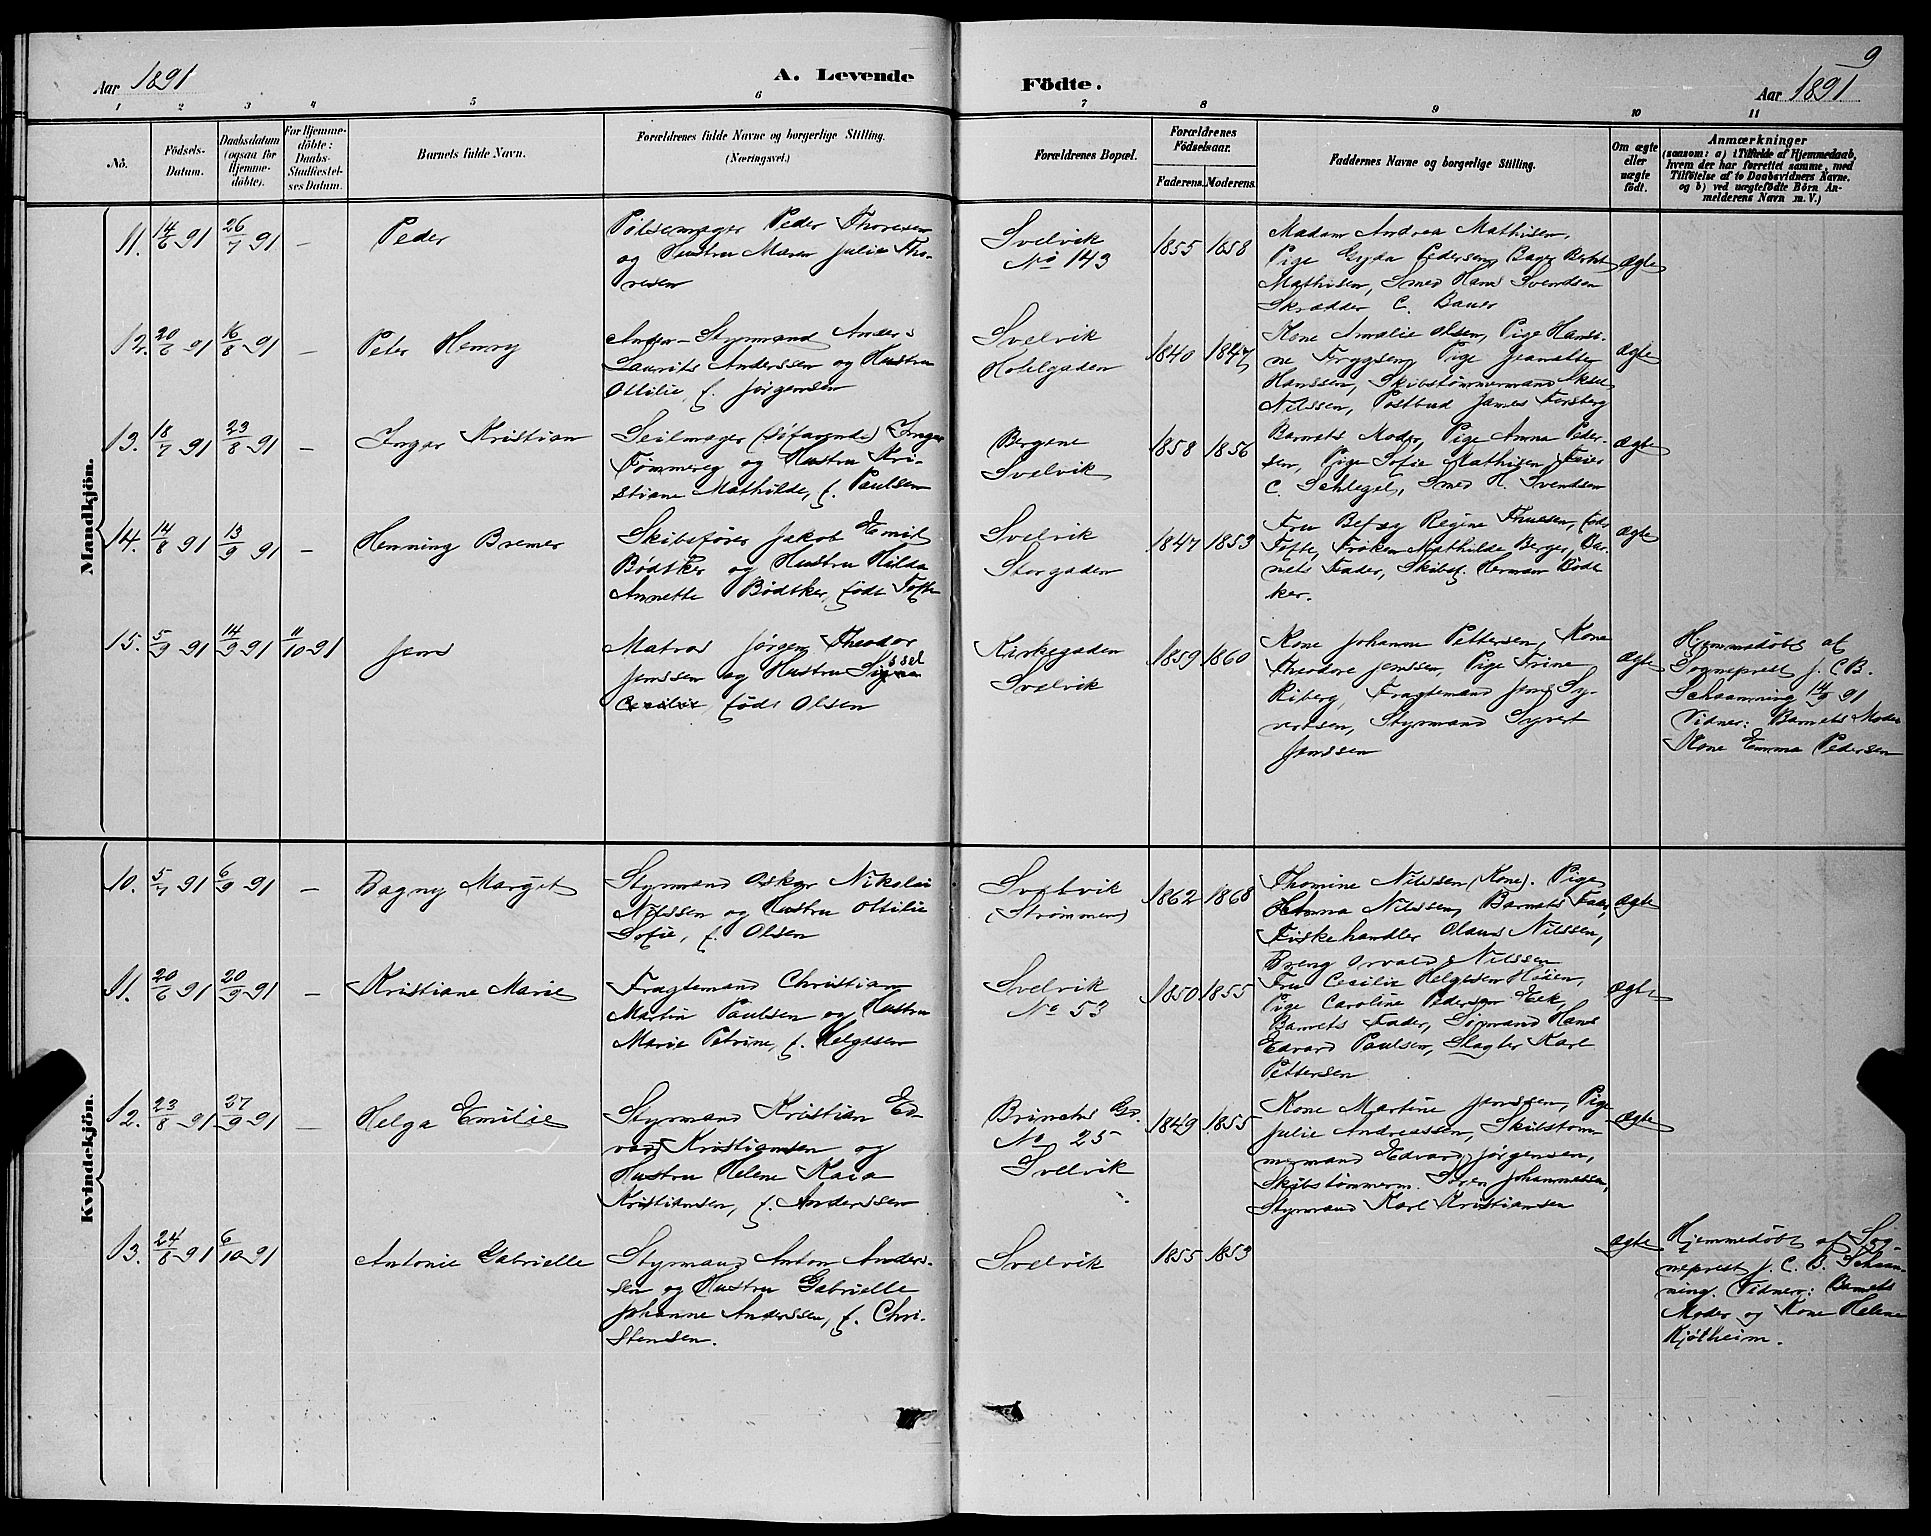 9
Aar 1891 A. Levende Födte. Aar 1891
1 2 3 4 5 6 7 8 9 10 11
No. Födsels-Datum. Daabsdatum (ogsaa for Hjemme-döbte). For Hjemme-döbte: Daabs-Stadfæstel-ses Datum. Barnets fulde Navn. Forældrenes fulde Navne og borgerlige Stilling. (Næringsvei.) Forældrenes Bopæl. Forældrenes Födselsaar. Faderens. Moderens. Faddernes Navne og borgerlige Stilling. Om ægte eller uægte födt. Anmærkninger (saasom: a) i Tilfælde af Hjemmedaab, hvem der har forrettet samme, med Tilföielse af to Daabsvidners Navne. og b) ved uægtefödte Börn An-melderens Navn m. V.)
Mandkjön.
11. 14/6 91 26/7 91 — Peder
Pølsemager Peder Thoresen
og Hustru Maren Julie Tho-
resen
Svelvik
No 143
1855 1858
Madam Andrea Mathisen,
Pige Gyda Pedersen, Bager Bernt
Mathisen, Smed Hans Svendsen
Skrædder C. Bauer
ægte
12. 20/6 91 16/8 91 — Peter Henry
Anden-Styrmand Anders
Laurits Anderssen og Hustru
Ottilie, f. Jørgensen
Svelvik
Hotelgaden
1840 1847
Kone Amalie Olsen, Pige Hansi-
ne Tryggsen, Pige Jeanette
Hanssen, Skibstømmermand Aksel
Nilssen, Postbud James Forsberg
ægte
13. 18/7 91 23/8 91 — Ingar Kristian
Seilmager (Søfarende) Ingar
Tømmereg og Hustru Kri-
stiane Mathilde, f. Paulsen
Bergene
Svelvik
1858 1856
Barnets Moder, Pige Anna Peder-
sen, Pige Sofie Mathisen, Feier
C. Schlegel, Smed H. Svendsen
ægte
14. 14/8 91 13/9 91 — Henning Bremer
Skibsfører Jakob Emil
Bødtker og Hustru Hilda
Annette Bødtker, født Tofte
Svelvik
Storgaden
1847 1853
Fru Befæg Regine Thuesen, født
Tofte, Frøken Mathilde Berger, Bar-
nets Fader, Skibsf. Herman Bødt
ker.
ægte
15. 5/9 91 14/9 91 11/10 91 Jens
Matros Jørgen Theodor
Jenssen og Hustru Sissel
Cecilie, født Olsen
Kirkegaden
Svelvik
1859 1860
Kone Johanne Pettersen, Kone
Theodore Jenssen, Pige Trine
Riberg, Fragtemand Jens Sy-
vertsen, Styrmand Syvert
Jenssen
ægte
Hjemmedøbt af
Sogneprest J. C. B.
Schaanning 14/9 91
Vidner: Barnets Moder
Kone Emma Pedersen
Kvindekjön.
10. 5/7 91 6/9 91 — Dagny Margit
Styrmand Oskar Nikolai
Nilssen og Hustru Ottilie
Sofie, f. Olsen
Svelvik
(Strømmen)
1862 1868
Thomine Nilssen (Kone). Pige
Hanna Nilssen, Barnets Fader,
Fiskehandler Olaus Nilssen,
Dreng Osvald Nilssen
ægte
11. 20/6 91 20/9 91 — Kristiane Marie
Fragtemand Christian
Martin Paulsen og Hustru
Marie Petrine, f. Helgesen
Svelvik
No 53
1850 1855
Fru Cecilie Helgesen Høien,
Pige Caroline Pedersen Eek,
Barnets Fader, Sømand Hans
Edvard Paulsen, Slagter Karl
Pettersen
ægte
12. 23/8 91 27/9 91 — Helga Emilie
Styrmand Kristian Ed-
vard Kristiansen og
Hustru Helene Kaia
Kristiansen, f. Anderssen
No 25
Svelvik
1849 1855
Kone Martine Janssen, Pige
Julie Andreassen, Skibstøm-
mermand Edvard Jørgensen,
Skibstømmerm. Søren Johannessen,
Styrmand Karl Kristiansen
ægte
13. 24/8 91 6/10 91 Antonie Gabrielle
Styrmand Anton Anders-
sen og Hustru Gabrielle
Johanne Anderssen, f. Chri-
stensen.
Svelvik
1855 1853
ægte
Hjemmedøbt af Sog-
neprest J. C. B. Schaan-
ning. Vidner: Barnets
Moder og Kone Helene
Kjøtheim.